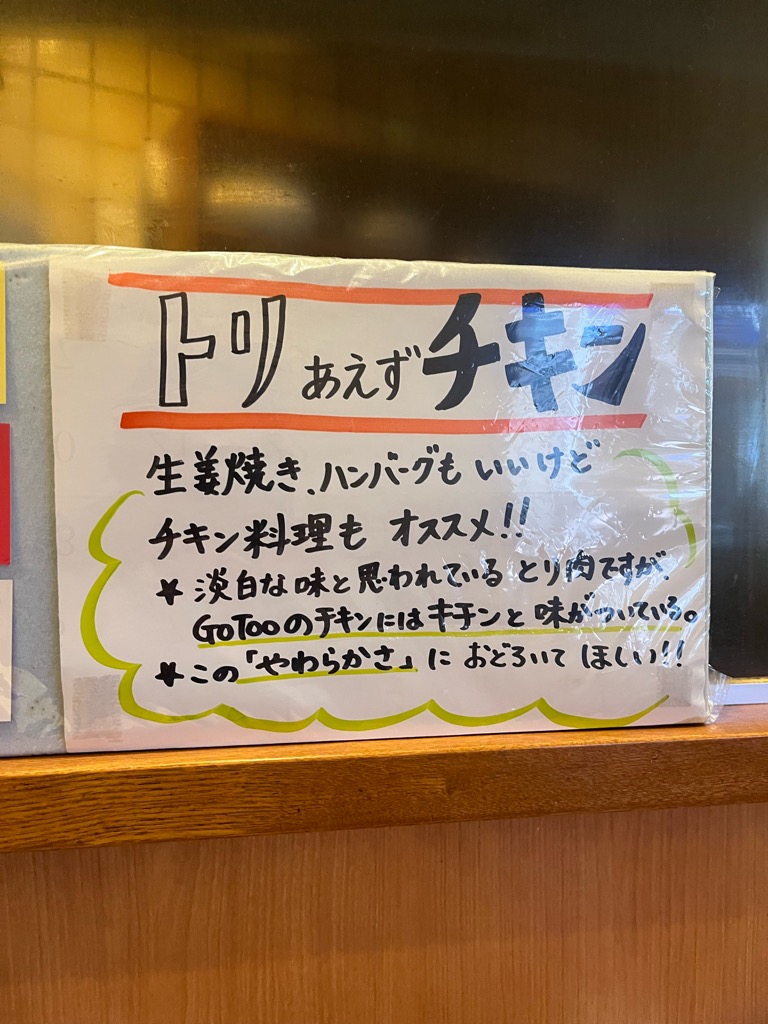 トリあえずチキン
生姜焼き、ハンバーグもいいけど
チキン料理も オススメ!!
* 淡白な味と思われている とり肉ですが、
GoTooのチキンにはキチンと味がついている。
* この「やわらかさ」に おどろいて ほしい!!